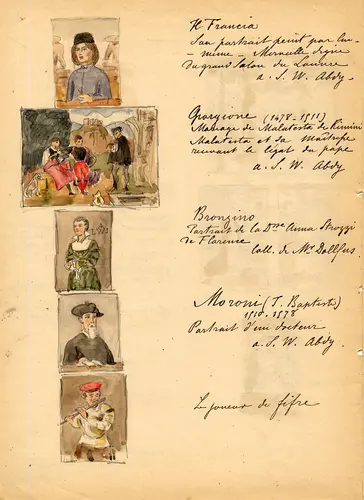 Il Francia
Son portrait peint par lui-
même - Merveille digne
du grand Salon du Louvre
a. S. W. Abdy
Giorgione (1478-1511)
Mariage de Malatesta de Rimini
Malatesta et sa maîtresse
recevant le légat du pape
a. S. W. Abdy
Bronzino
Portrait de la Dsse Anna Strozzi
de Florence
Coll. de Mr Dollfus
Moroni (J. Baptiste)
1510-1578
Portrait d'un docteur
a. S. W. Abdy
Le joueur de fifre